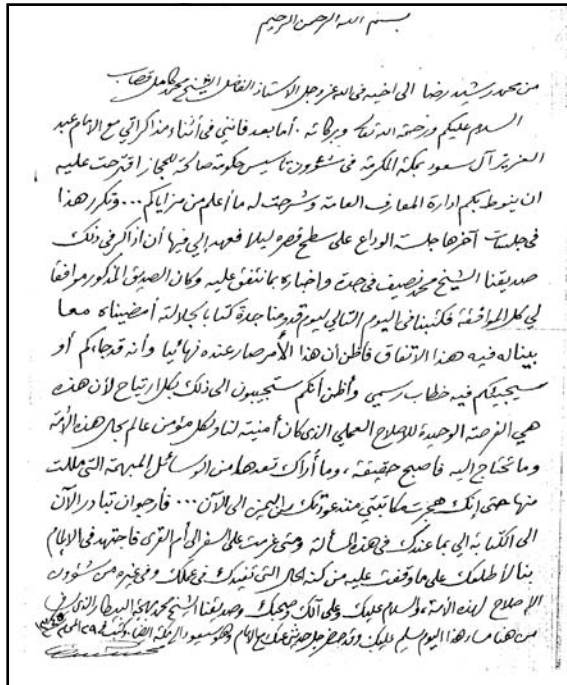 بسم الله الرحمن الرحيم
من محمد رشيد رضا الى اخيه في الله عز وجل الاستاذ الفاضل الشيخ محمد كامل قصاب
السلام عليكم ورحمة الله تعالى وبركاته . أما بعد فانني في أثناء مذاكراتي مع الامام عبد
العزيز آل سعود بمكة المكرمة في شئون تأسيس حكومة صالحة للحجاز اقترحت عليه
ان ينوط بكم ادارة المعارف العامة وشرحت له ما أعلم من مزاياكم ... وتكرر هذا
في جلسات آخرها جلسة الوداع على سطح قصره ليلا فعهد إلي فيها أن أذاكر في ذلك
صديقنا الشيخ محمد نصيف في جدة واخباره بما نتفق عليه وكان الصديق المذكور موافقا
لي كل الموافقة فكتبنا في اليوم التالي ليوم قدومنا جدة كتابا لجلالته أمضيناه معا
بينا له فيه هذا الاتفاق فأظن أن هذا الأمر صار عنده نهائيا وأنه قد جاءكم أو
سيجيئكم فيه خطاب رسمي وأظن أنكم ستجيبون الى ذلك بكل ارتياح لأن هذه
هي الفرصة الوحيدة للاصلاح العملي الذي كان أمنية لنا ولكل مؤمن عالم بحال هذه الأمة
وما تحتاج اليه فأصبح حقيقة ، وما أراك تعدها من الوسائل المبهمة التي مللت
منها حتى إنك هجرت مكاتبتي منذ عودتك من اليمن الى الآن ... فأرجو ان تبادر الآن
الى الكتابة إلي بما عندك في هذه المسألة ومتى عزمت على السفر الى أم القرى فاجتهد في الالمام
بنا لأطلعك على ما وقفت عليه من كنه الحال التي تفيدك في عملك وفي غيره من شئون
الاصلاح لهذه الأمة ، والسلام عليك وعلى آلك وصحبك وصديقنا الشيخ محمد بهجة البيطار الذي
من هنا مساء هذا اليوم يسلم عليك وقد حضر مع الامام وكتب في ٢٩ المحرم